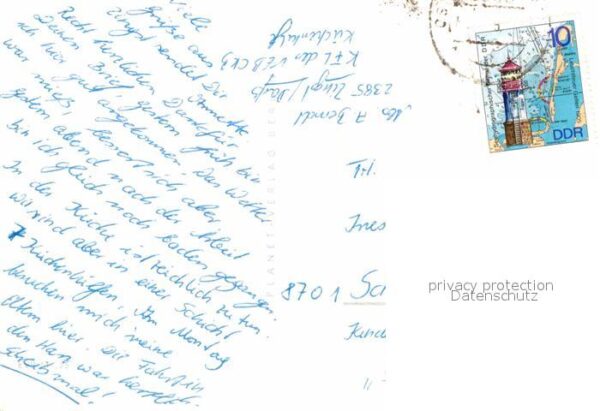 Viele
Grüße aus
Zingst sendet Dir Annette
Recht herzlichen Dank für
Deinen Brief. Gestern früh bin
ich hier gut angekommen. Das Wetter
war mies, bessert sich aber
Gestern abend nach der Arbeit
bin ich gleich noch baden gegangen.
In der Küche ist reichlich zu tun
wir sind aber in einer Schicht
7 Küchenhilfen. Am Montag
besuchen mich meine
Eltern hier. Die Fahrt in
den Harz war herrlich.
Schreib mal!
Abs. A. Berndt
2385 Zingst/Darß
KFL des VEB CKB
Küchenhilfe
PLANET-VERLAG BER
Frl.
Ines
8701 Sa
10
DDR
privacy protection
Datenschutz